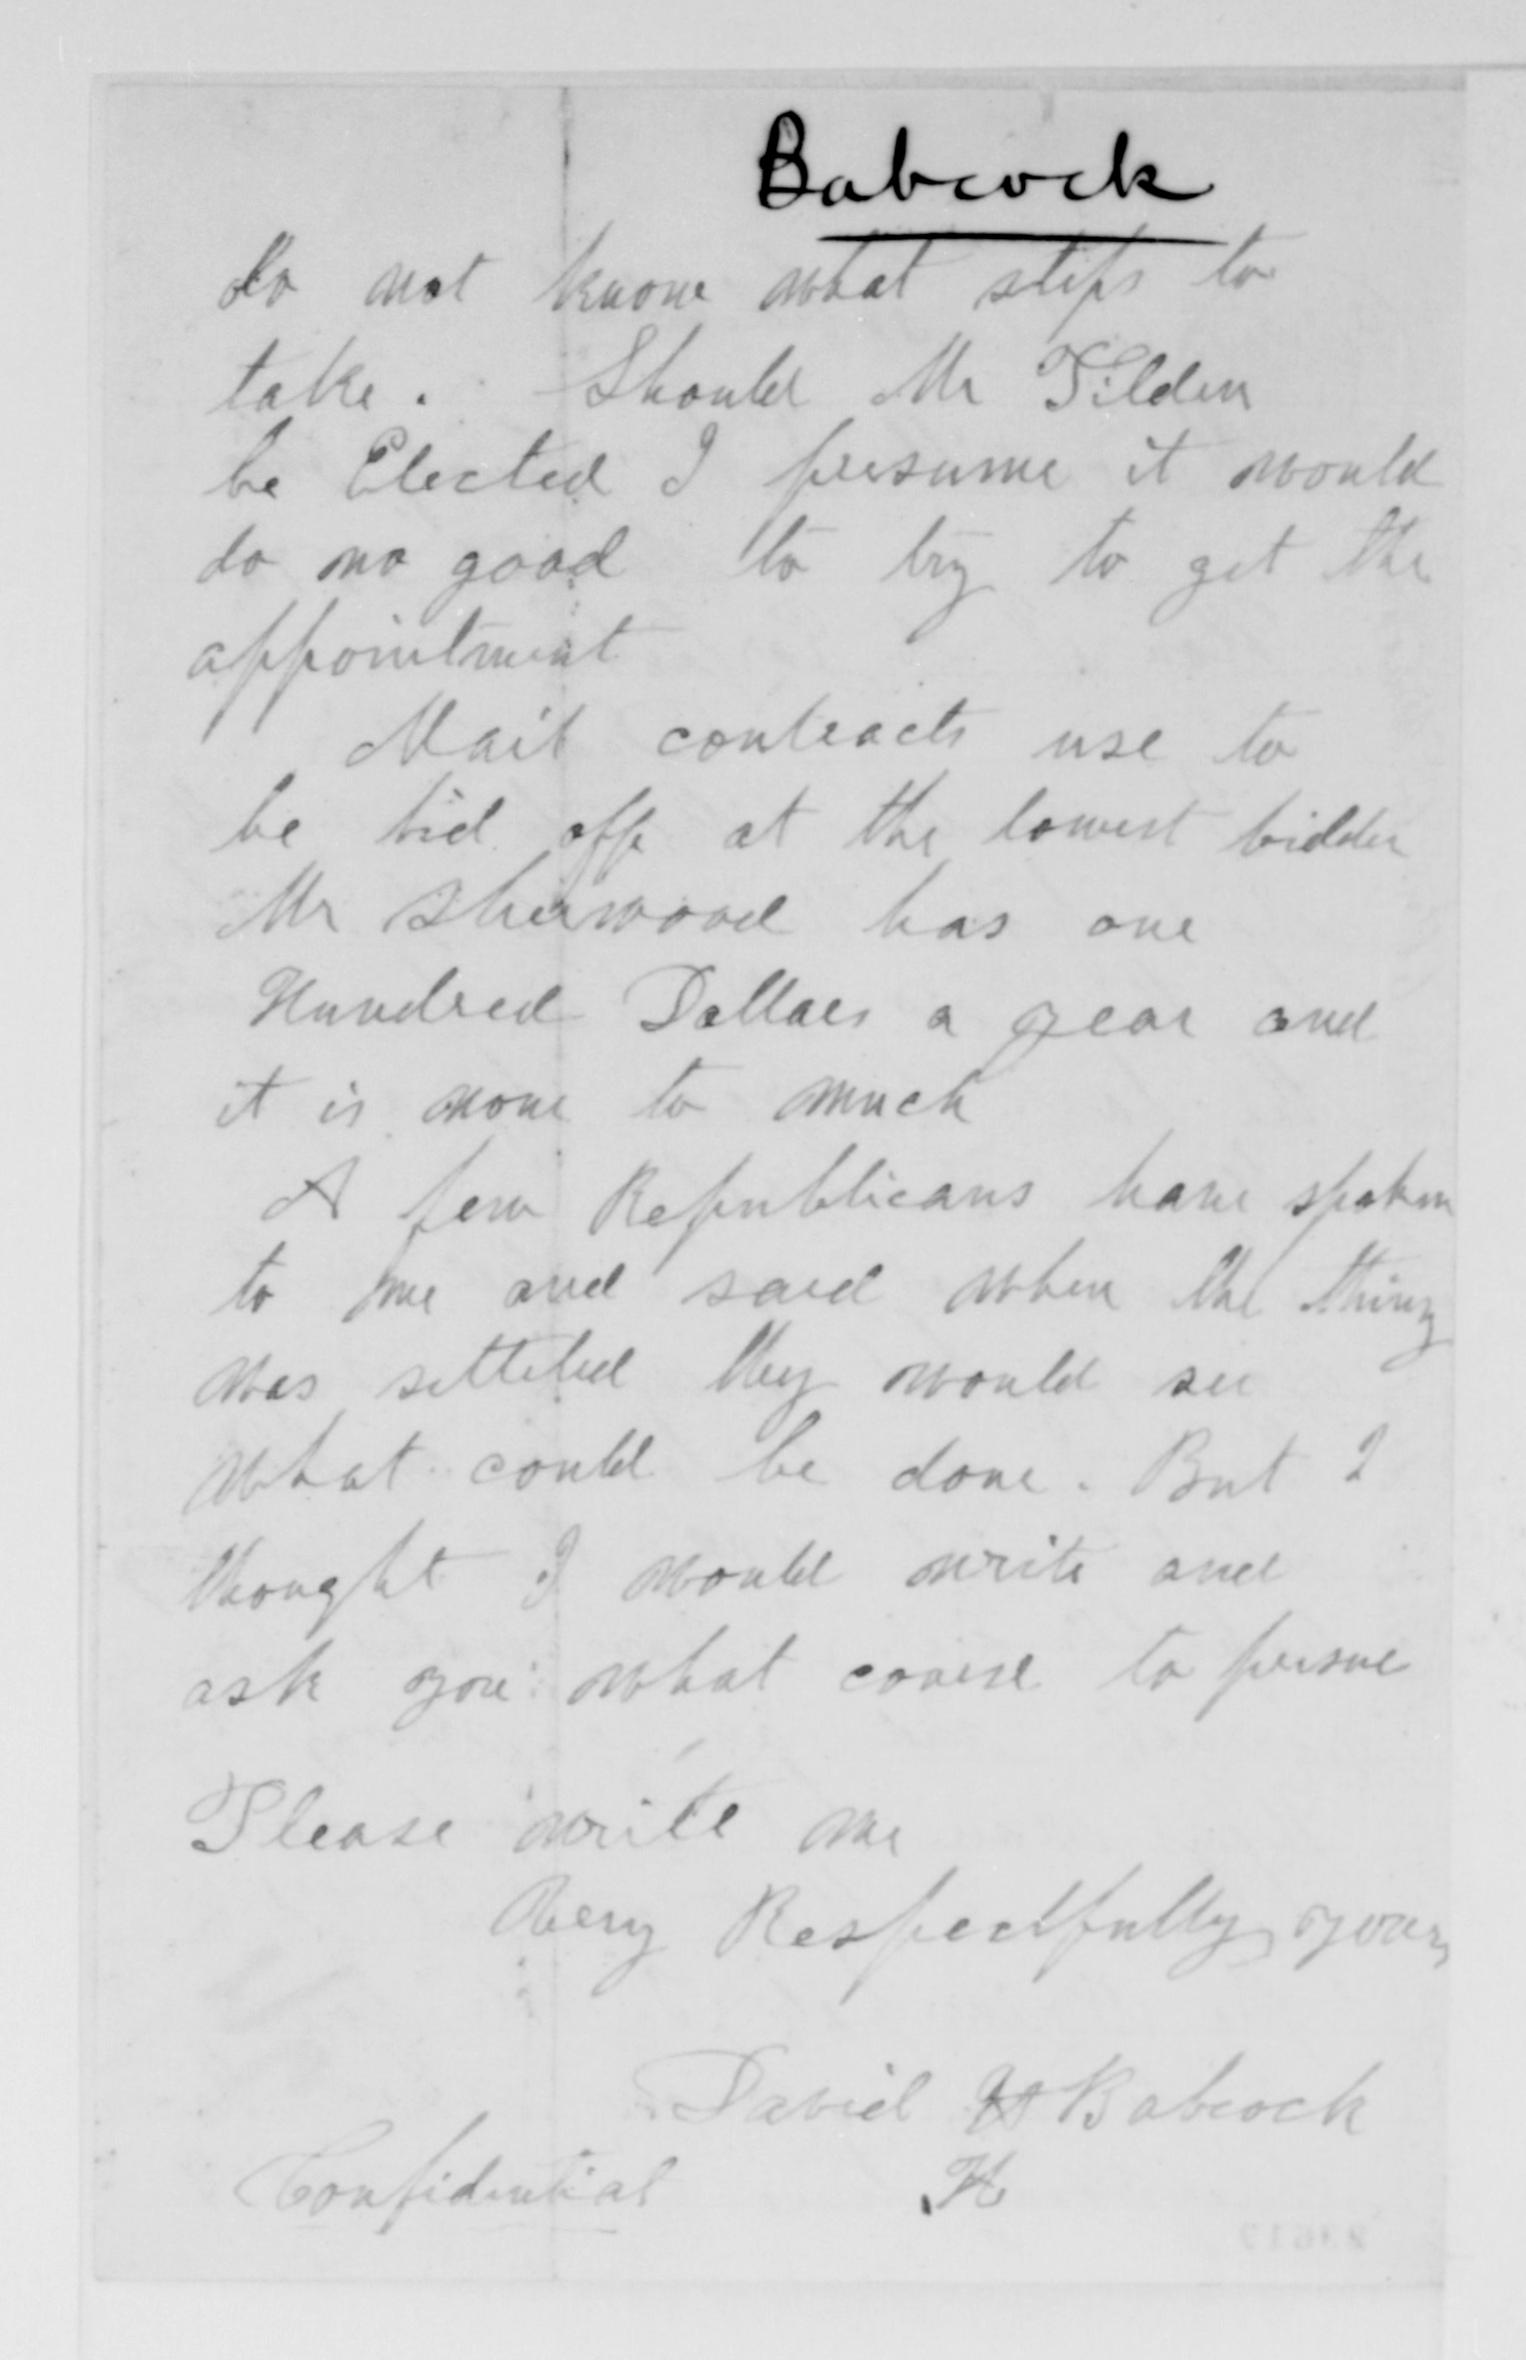 Babcock
do not know what steps to
take. Should Mr Tilden
be Elected I presume it would
do no good to try to get the
appointment
Mail contracts use to
be bid off at the lowest bidder
Mr Sherwood has one
Hundred Dollars a year and
it is none to much
A few Republicans have spoken
to me and said when the thing
was setteled they would see
what could be done. But I
thought I would write and
ask you what course to persue
Please write me
Very Respectfully yours
David H Babcock
Confidential H